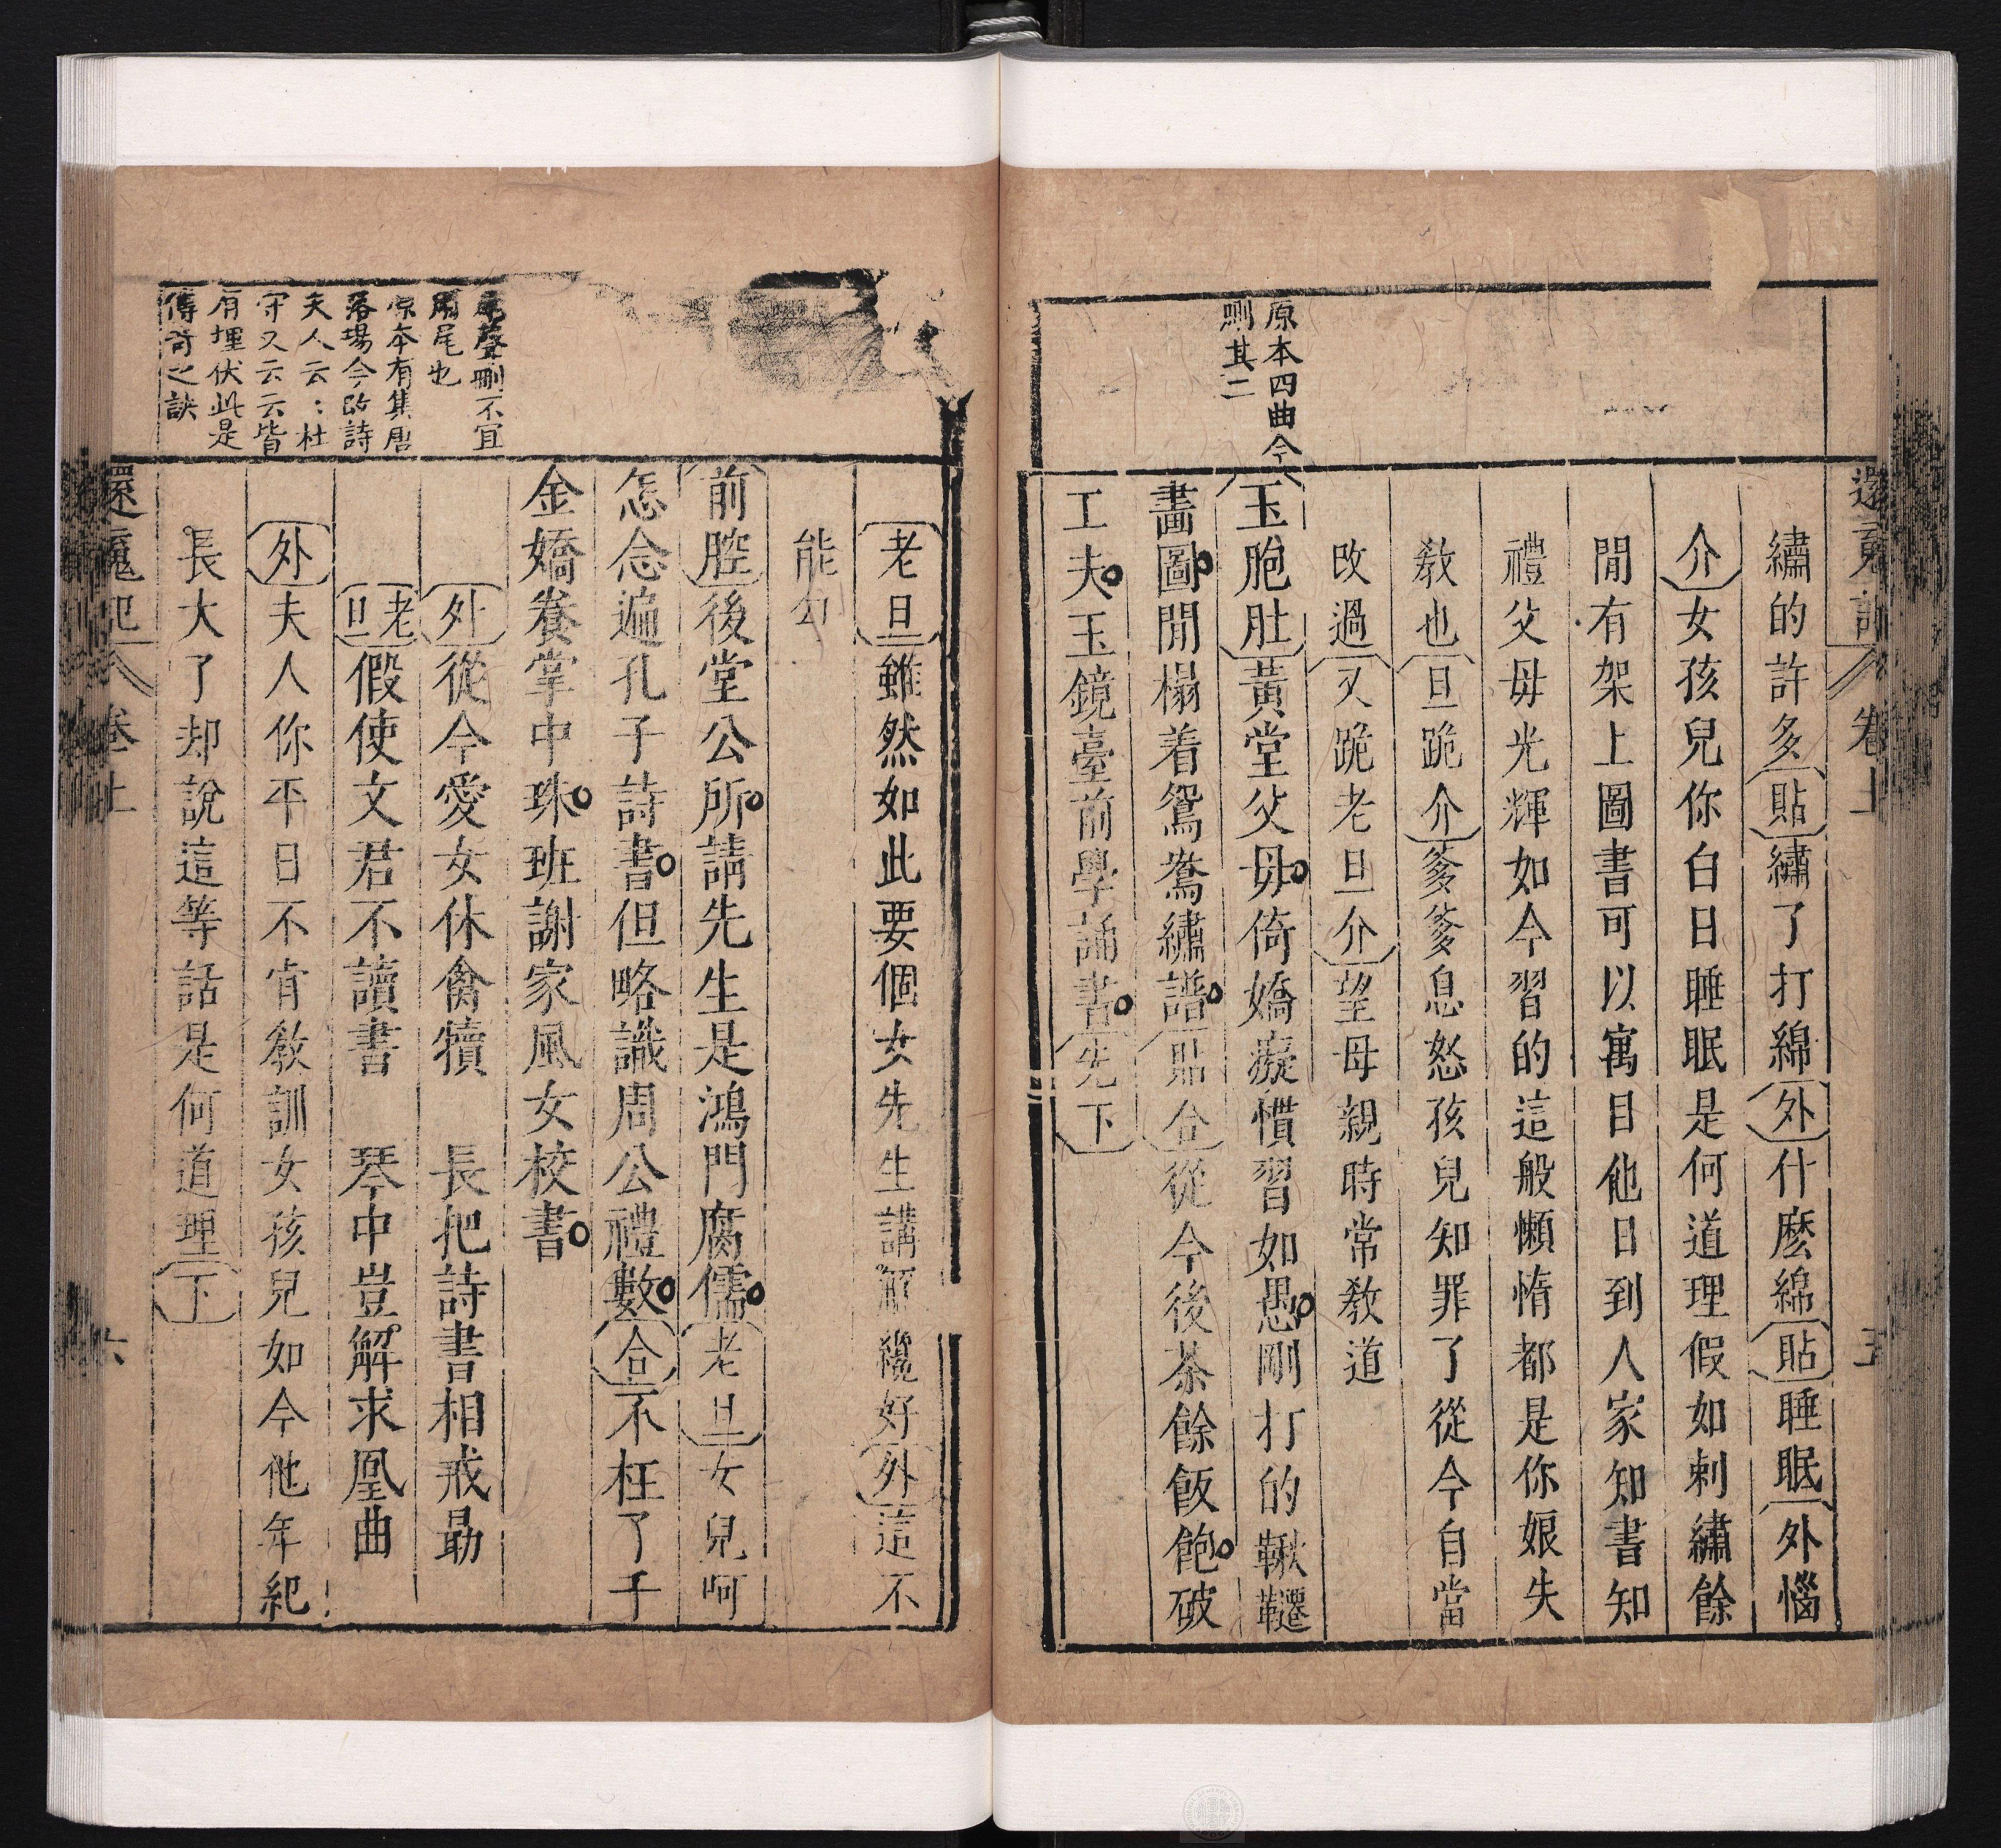 還魂記 卷上 五
原本四曲今
刪其二
繡的許多貼繡了打綿外什麼綿貼睡眠外惱
介女孩兒你白日睡眠是何道理假如刺繡餘
閒有架上圖書可以寓目他日到人家知書知
禮父母光輝如今習的這般懶惰都是你娘失
教也旦跪介爹爹息怒孩兒知罪了從今自當
改過又跪老旦介望母親時常教道
玉胞肚黃堂父母倚嬌癡慣習如愚剛打的鞦韆
畵圖閒榻着鴛鴦繡譜貼合從今後茶餘飯飽破
工夫玉鏡臺前學誦書先下
聲刪不宜
尾也
原本有集唐
落場今改詩
夫人云云杜
守又云云皆
有埋伏此是
傳奇之訣
老旦雖然如此要個女先生講解纔好外這不
能勾
前腔後堂公所請先生是鴻門腐儒老旦女兒呵
怎念遍孔子詩書但略識周公禮數合不枉了子
金嬌養掌中珠班謝家風女校書
外從今愛女休禽犢 長把詩書相戒勗
老旦假使文君不讀書 琴中豈解求凰曲
外夫人你平日不肯教訓女孩兒如今他年紀
長大了却說這等話是何道理下
還魂記 卷上 六